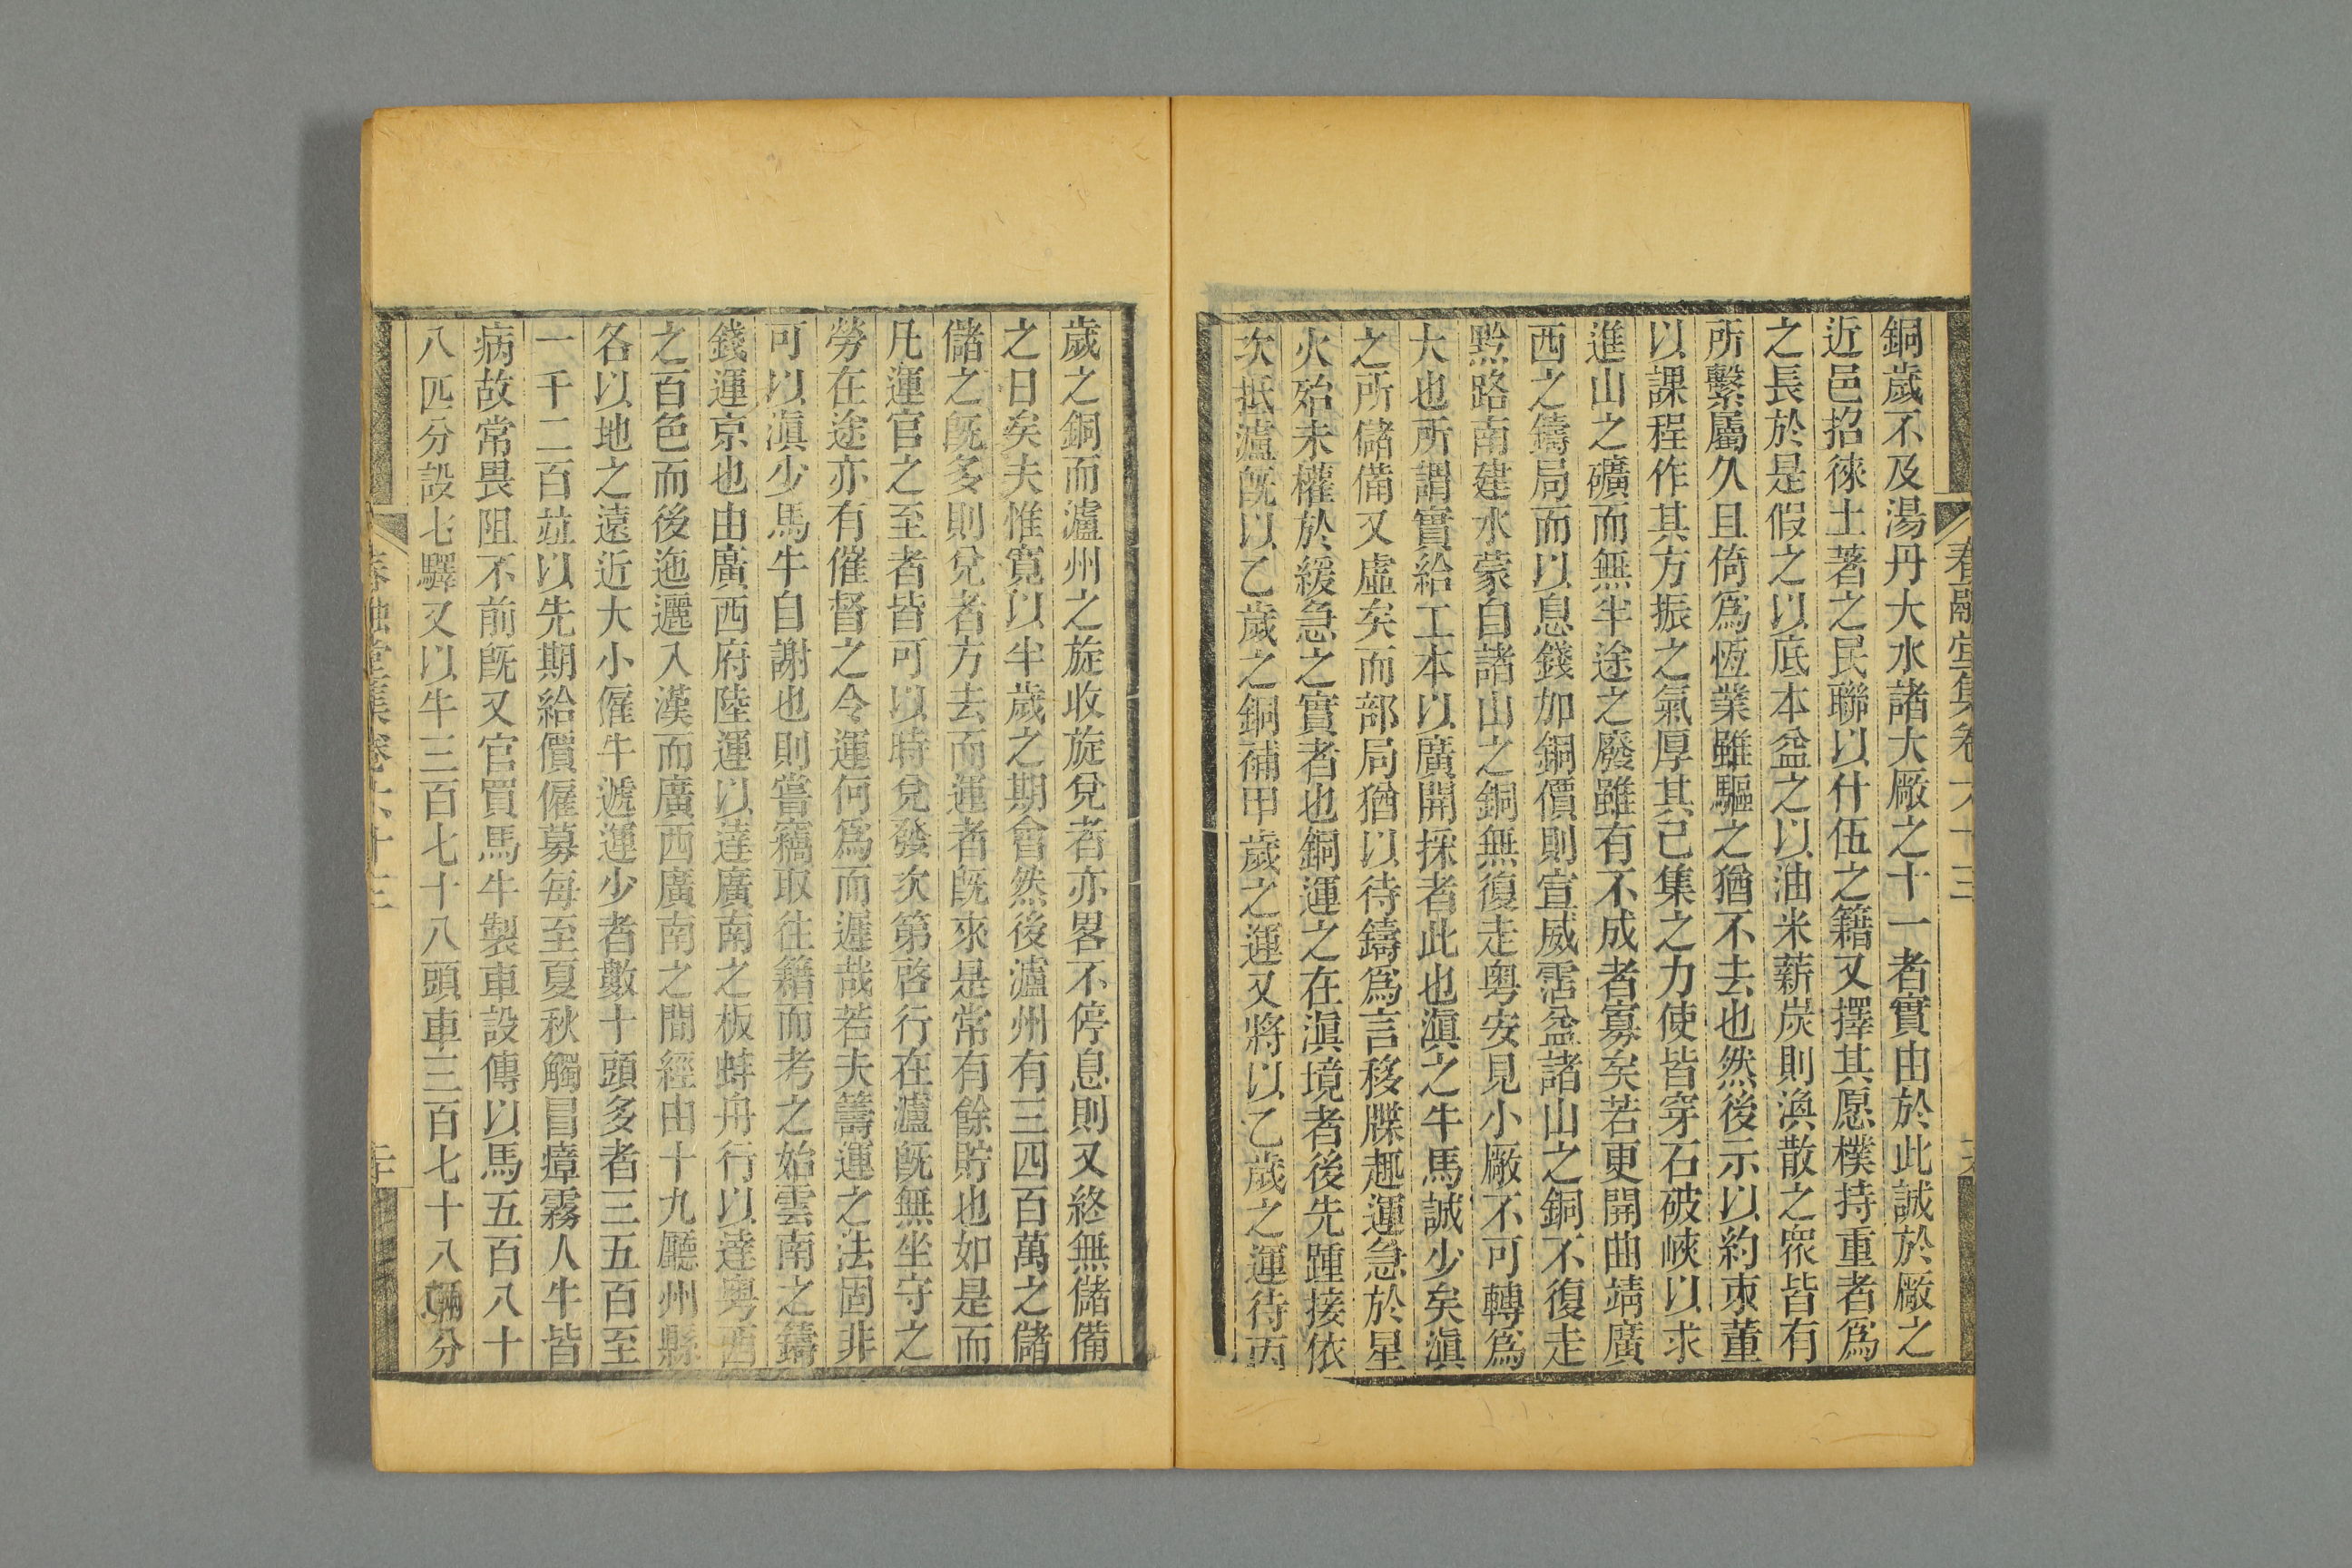 春融堂集卷六十三
銅歲不及湯丹大水諸大厰之十一者實由於此誠於厰之
近邑招徠土著之民聯以什伍之籍又擇其愿樸持重者爲
之長於是假之以底本益之以油米薪炭則渙散之衆皆有
所繫屬久且倚爲恆業雖驅之猶不去也然後示以約束董
以課程作其方振之氣厚其已集之力使皆穿石破峽以求
進山之礦而無半途之廢雖有不成者寡矣若更開曲靖廣
西之鑄局而以息錢加銅價則宣威霑益諸山之銅不復走
黔路南建水蒙自諸山之銅無復走粤安見小厰不可轉爲
大也所謂實給工本以廣開採者此也滇之牛馬誠少矣滇
之所儲備又虛矣而部局猶以待鑄爲言移牒趣運急於星
火殆未權於緩急之實者也銅運之在滇境者後先踵接依
次抵瀘既以乙歲之銅補甲歲之運又將以乙歲之運待丙
歲之銅而瀘州之旋收旋兌者亦畧不停息則又終無儲備
之日矣夫惟寬以半歲之期會然後瀘州有三四百萬之儲
儲之既多則兌者方去而運者既來是常有餘貯也如是而
凡運官之至者皆可以時兌發次第啓行在瀘既無坐守之
勞在途亦有催督之令運何爲而遲哉若夫籌運之法固非
可以滇少馬牛自謝也則嘗竊取往籍而考之始雲南之鑄
錢運京也由廣西府陸運以達廣南之板蚌舟行以達粤西
之百色而後迤邐入漢而廣西廣南之間經由十九廳州縣
各以地之遠近大小僱牛遞運少者數十頭多者三五百至
一千二百並以先期給價僱募每至夏秋觸冒瘴霧人牛皆
病故常畏阻不前既又官買馬牛製車設傳以馬五百八十
八匹分設七驛又以牛三百七十八頭車三百七十八輛分
春融堂集卷六十三